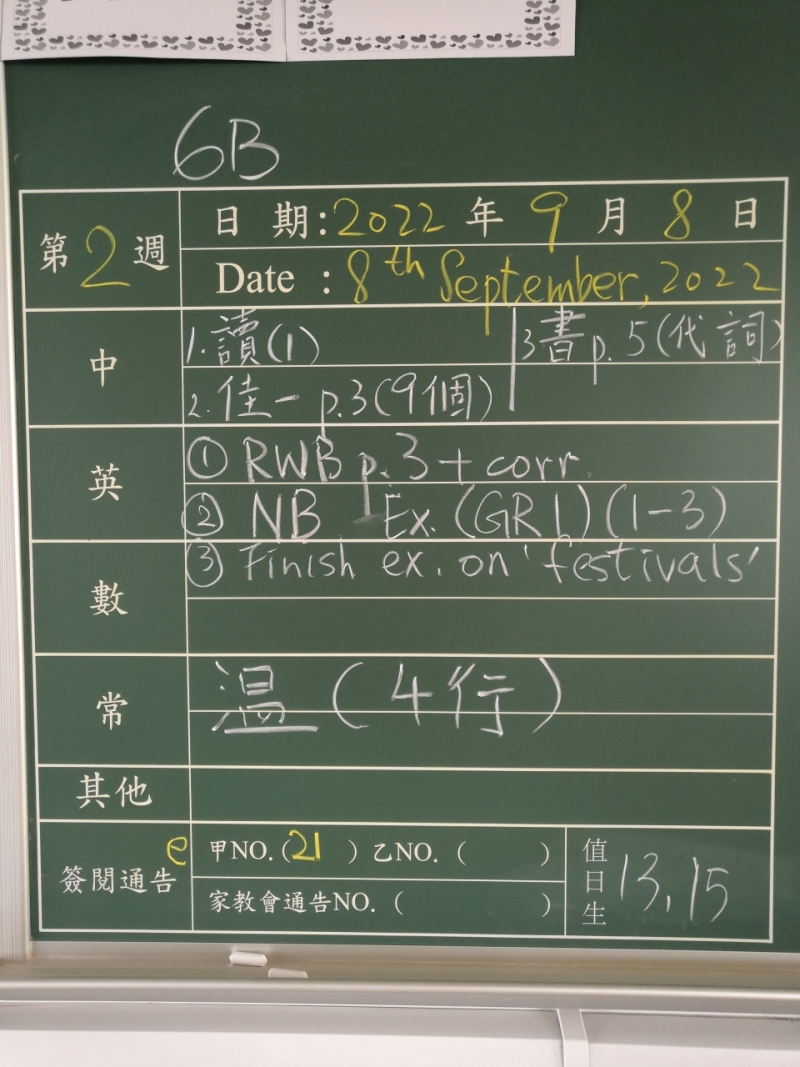 6B
第2週
日 期:2022 年 9 月 8 日
Date : 8th September, 2022
中
1.讀(1)
3書p.5(代詞)
2.佳一 p.3(9個)
英
① RWB p.3 + corr.
② NB Ex. (GR1) (1-3)
數
③ Finish ex. on 'festivals'
常
溫(4行)
其他
簽閱通告 e
甲NO.(21 ) 乙NO.( )
家教會通告NO.( )
值日生
13, 15